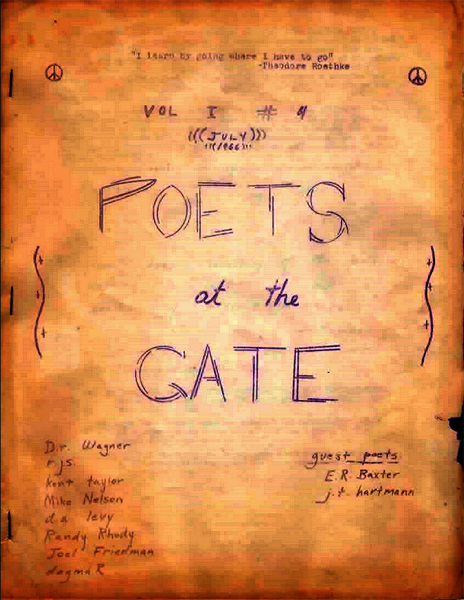 "I learn by going where I have to go"
-Theodore Roethke
VOL I # 4
(((JULY)))
(((1966)))
POETS
at the
GATE
D.r. Wagner
r.j.s.
kent taylor
Mike Nelson
d.a. levy
Randy Rhody
Joel Friedman
dagmaR
guest poets
E.R. Baxter
j.t. hartmann